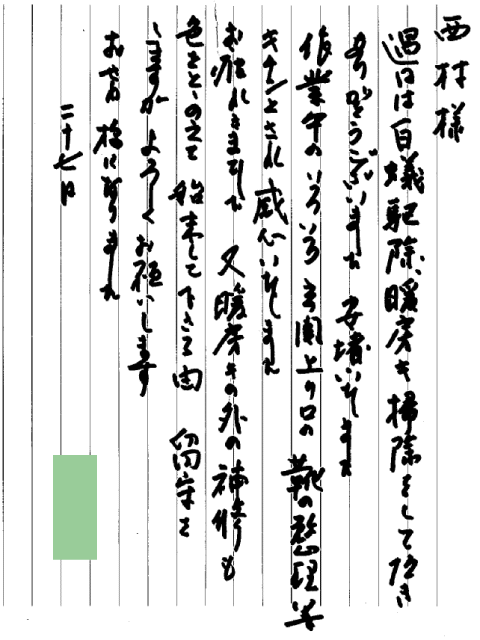 西村様
過日は白蟻駆除、暖房キ掃除をして頂き
ありがとうございました 安堵いたしました
作業中のいろいろ 玄関上り口の 靴の整理等
キチンとされ感心いたしました
お疲れさまでした 又暖房キの外の補修も
色をととのえて 始末して下さる由 留守を
しますがよろしくお願いします
お世話様になりました
二十七日